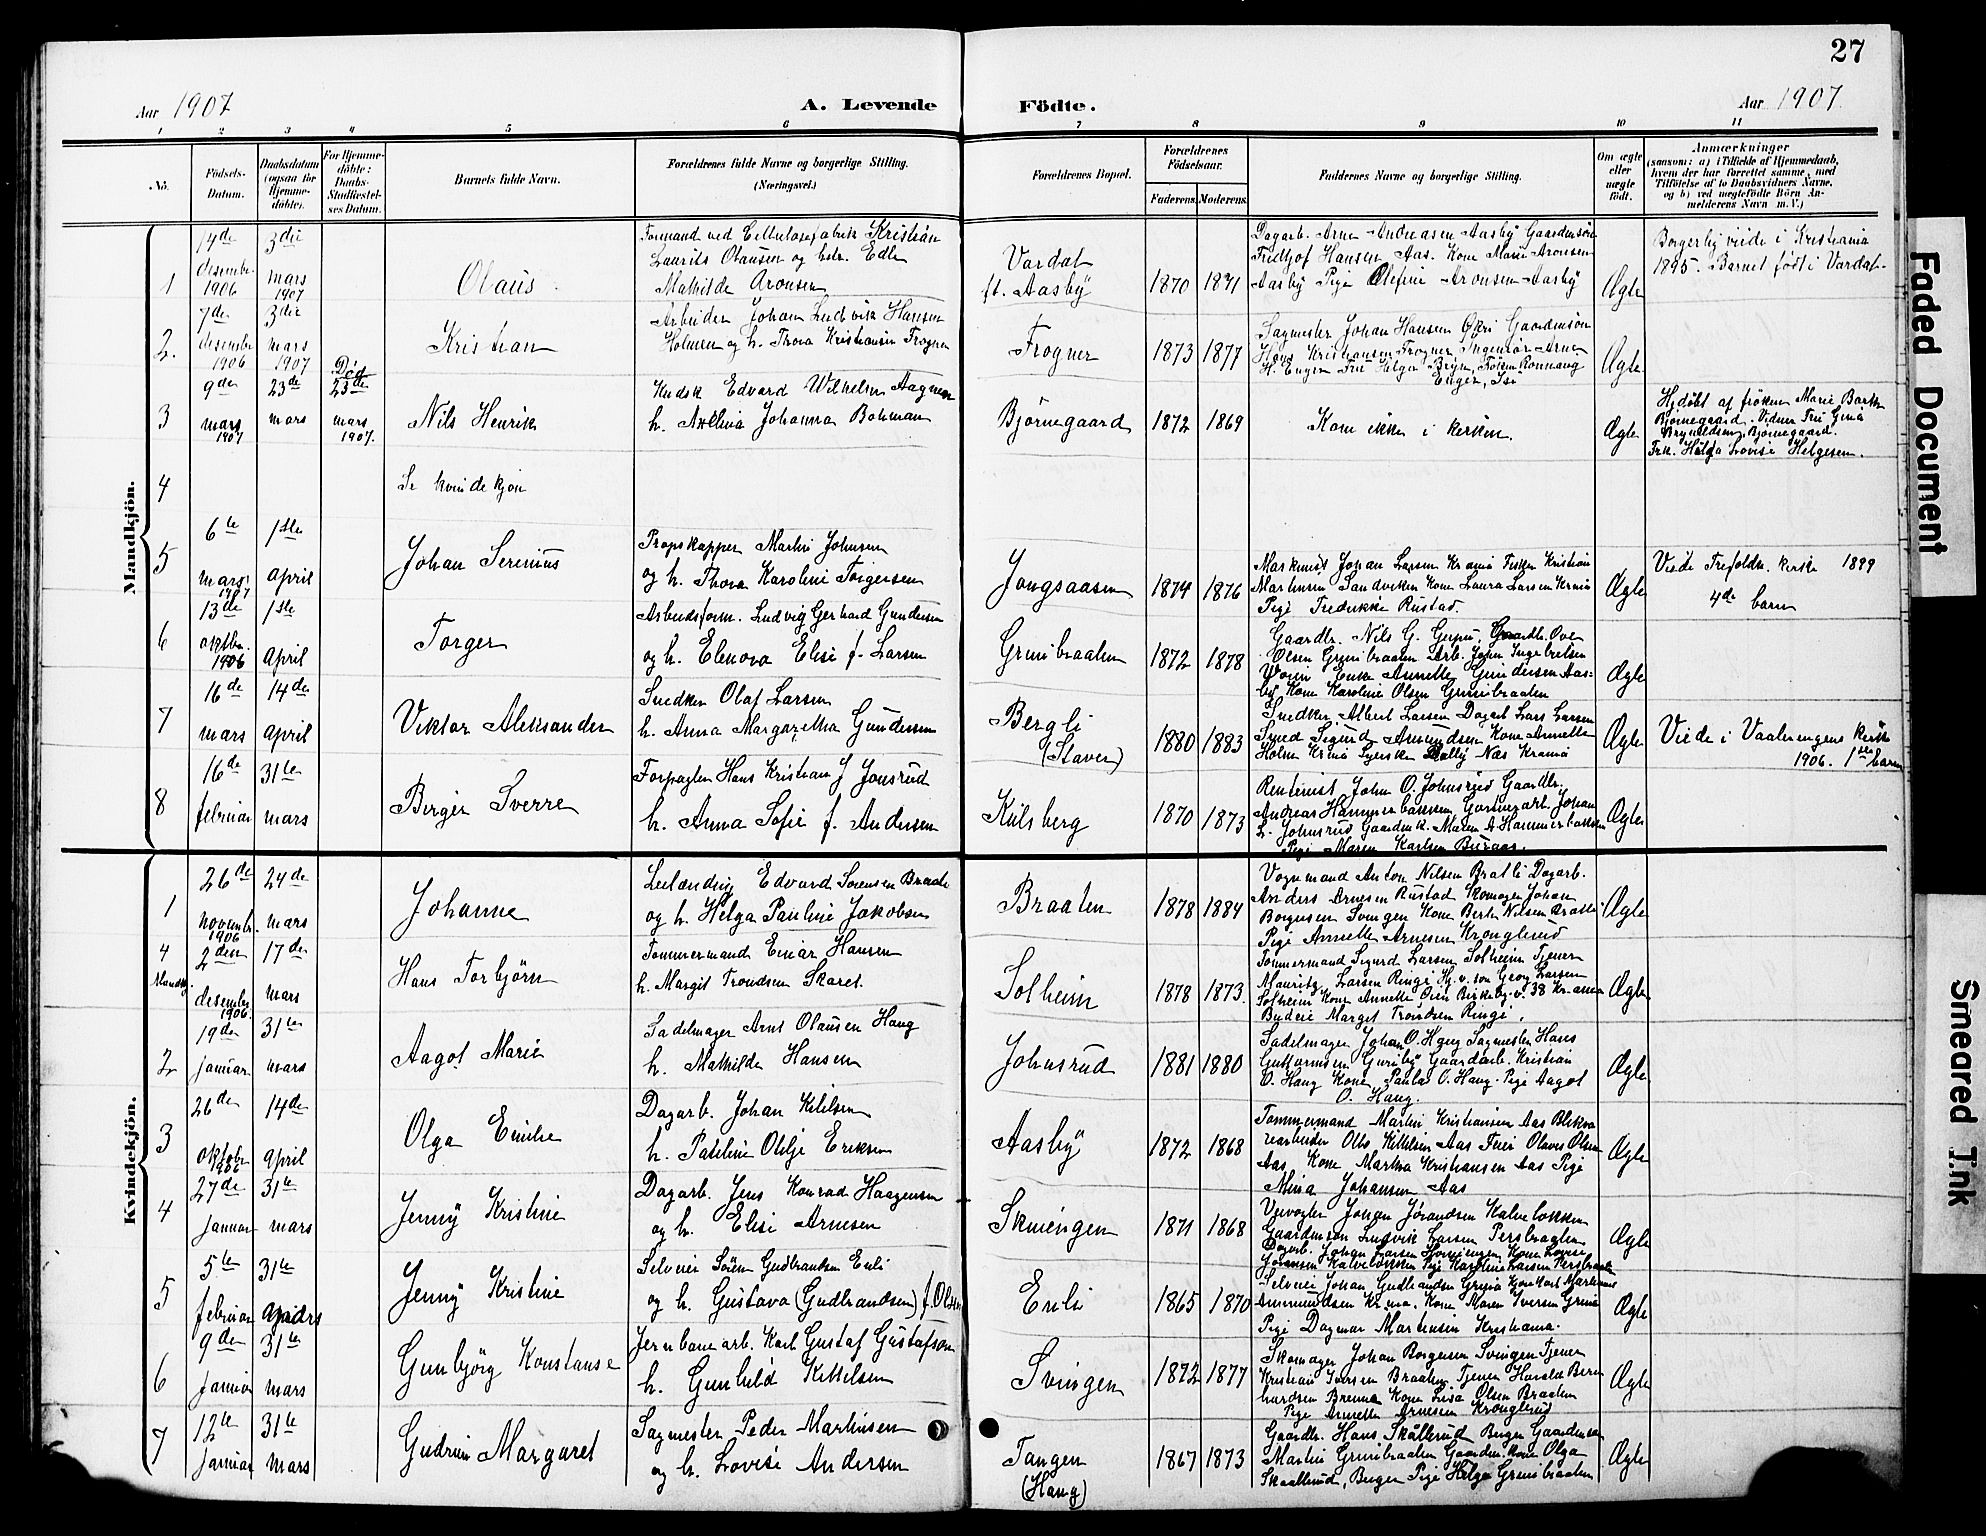 27
Aar 1907
A. Levende
Födte.
Aar 1907.
1 2 3 4 5 6 7 8 9 10 11
No.
Födsels-
Datum.
Daabsdatum
(ogsaa for
Hjemme-
döbte).
For Hjemme-
döbte:
Daabs-
Stadfæstel-
ses Datum.
Barnets fulde Navn.
Forældrenes fulde Navne og borgerlige Stilling.
(Næringsvei.)
Forældrenes Bopæl.
Forældrenes
Födselsaar.
Faderens.
Moderens.
Faddernes Navne og borgerlige Stilling.
Om ægte
eller
uægte
født.
Anmærkninger
(saasom: a) i Tilfælde af Hjemmedaab,
hvem der har forrettet samme, med
Tilföielse af to Daabsvidners Navne,
og b) ved uegtefödte Börn An-
melderens Navn m. V.)
Mandkjön.
1
14de
desember
1906
3die
mars
1907
Olaus
Formand ved Cellulosefabrik Kristian
Laurits Olausen og hstr. Edle
Mathilde Aronsen
Vardal
ft. Aasby
1870 1871
Dagarb. Arne Andreasen Aasby Gaardmsön
Fridtjof Hansen Aas. Kone Marie Aronsen
Aasby Pige Olefine Aronsen Aasby
Ægte
Borgerlig viede i Kristiania
1895. Barnet født i Vardal.
2.
7de
desember
1906
3die
mars
1907
Kristian
Arbeider Johan Ludvik Hansen
Holmen og h. Thora Kristiansen Frogner
Frogner
1873 1877
Sagmester Johan Hansen Gaardmsön
Hans Kristiansen Frogner, Ingeniør Arne
H. Enger Fru Helga Bryn, Frøken Ronnaug
Enger,
Ægte
3
9de
mars
1907
23de
mars
Död
23de
mars
1907.
Nils Henrik
Kudsk Edvard Wilhelm Aagesen
h. Avelina Johanna Bohman
Björnegaard
1872 1869
Kom ikke i kirken.
Ægte
Hjdöbt af frøken Marie Barth
Bjørnegaard. Vidner Fru Gina
Brynildsen, Bjørnegaard.
Frk. Helga Lovise Helgesen.
4
Se kvindekjøn
5
6te
mars
1907
1ste
April
Johan Serenius
Propskapper Martin Johnsen
og h. Thora Karoline Torgersen
Jongsaasen
1874 1876
Maskinist Johan Larsen Krania Fisker Kristian
Martinsen Sandviken Kone Laura Larsen Krania
Pige Fredrikke Rustad.
Ægte
Viede Trefoldh. kirke 1899
4de barn
6
13de
oktbr.
1906
1ste
April
Torger
Arbeidsform. Ludvig Gerhard Gundersen
og h. Elenora Elise f. Larsen
Grinibraaten
1872 1878
Gaardbr. Nils G. Gaardbr. Ove
Olsen Grinibraaten Arb. John Ingebretsen
Enke Annette Gundersen Aas-
by Kone Karoline Olsen Grinibraaten
Ægte
7
16de
mars
14de
April
Viktor Aleksander
Snedker Olaf Larsen
h. Anna Margaretha Gundersen
Bergli
(Staver)
1880 1883
Snedker Albert Larsen Dagarb Lars Larsen
Smed Sigurd Amundsen Kone Annette
Holm Krania Syerske Dolly Næs Krania
Ægte
Viede i Vaalerengens kirke
1906. 1ste barn
8
16de
februar
31te
mars
Birger Sverre
Forpagter Hans Kristian J Jonsrud
h. Anna Sofie f. Andersen
Kilsberg
1870 1873
Rentenist John O. Johnsrud Gaardbr.
Andreas Hammerbakken Gartnerarb. Johan
L. Johnsrud Gaardmk. Maren A. Hammerbakken
Pige Maren Karlsen Buraas.
Ægte
Kvindekjön.
1
26de
novembr.
1906
24de
mars
Johanne
Leilænding Edvard Sørensen Braate
og h. Helga Pauline Jakobsen
Braaten
1878 1884
Vognmand Anton Nilsen Bratli Dagarb.
Anders Arnesen Rustad Skomager Johan
Borgersen Svingen Kone Berte Nilsen Bratli
Pige Annette Arnesen Kronglerud
Ægte
4
Mandskj.
2den
desember
1906.
17de
mars
Hans Torbjörn
Tømmermand Einar Hansen
h. Margit Trondsen Skaret
Solheim
1878 1873.
Tømmermand Sigurd Larsen Solheim Tjener
Mauritz Larsen Ringi Hj. v. søn Georg Larsen
Solheim Kone Annette Oien Birkeby v. 38 Kr.ania
Budeie Marget Trondsen Ringi.
Ægte
2
19de
januar
31te
mars
Aagot Marie
Sadelmager Arnt Olausen Haug
h. Mathilde Hansen
Johnsrud
1881 1880
Sadelmager Johan O. Haug Sagmester Hans
Guttormsen Guriby Gaardarb. Kristian
O. Haug Kone Paula O. Haug. Pige Aagot
O. Haug.
Ægte
3
26de
oktober
1906
14de
april
Olga Emilie
Dagarb. Johan Kittelsen
h. Pauline Otilje Eriksen
Aasby
1872 1868
Tømmermand Martin Kristiansen Aas Blikva
rearbeider Otto Kittelsen Aas Frue Olaves Olsen
Aas Kone Martha Kristiansen Aas Pige
Mina Johansen Aas
Ægte
4
27de
Januar
31te
mars
Jenny Kristine
Dagarb. Jens Konrad Haagensen
og h. Elise Arnesen
Skuiengen
1871 1868
Veivogter Johan Jørandsen Kalveløkken
Gaardmsøn Ludvik Larsen Persbraaten
Dagarb. Johan Larsen Kone Lovise
Jøransen Kalveløkken Pige Karoline Larsen Persbraaten
Ægte
5
5te
februar
31te
mars
Jenny Kristine
Selveier Sören Gudbrandsen Enli
og h. Gustava (Gudbrandsen) f. Olsen
Enli
1865 1870
Selveier Johan Gudbrandsen Grinia Kontorist Martinus
Ammundsen Kr.nia. Kone Maren Iversen Grinia
Pige Dagmar Martinsen Kristiania.
Ægte
6
9de
Januar
31te
mars
Gunbjörg Konstanse
Jernbanearb. Karl Gustaf Gustafson
h. Gunhild Kittelsen
Svingen
1872 1877
Skomager Johan Borgersen Svingen Tjener
Kristian Iversen Braaten Tjener Harald Bern
hardsen Brenna Kone Lisa Olsen Braaten
Pige Annette Arnesen Kronglerud
Ægte
7
12te
Januar
31te
mars
Gudrun Margaret
Sagmester Peder Martinsen
og h. Lovise Andersen
Tangen
(Haug)
1867 1873
Gaardbr. Hans Skallerud Burger Gaardmsøn
Martin Grinibraaten Gaardm. kone Olga
Skallerud, Burger Pige Helga Grinibraaten
Ægte
Faded Document
Smeared Ink